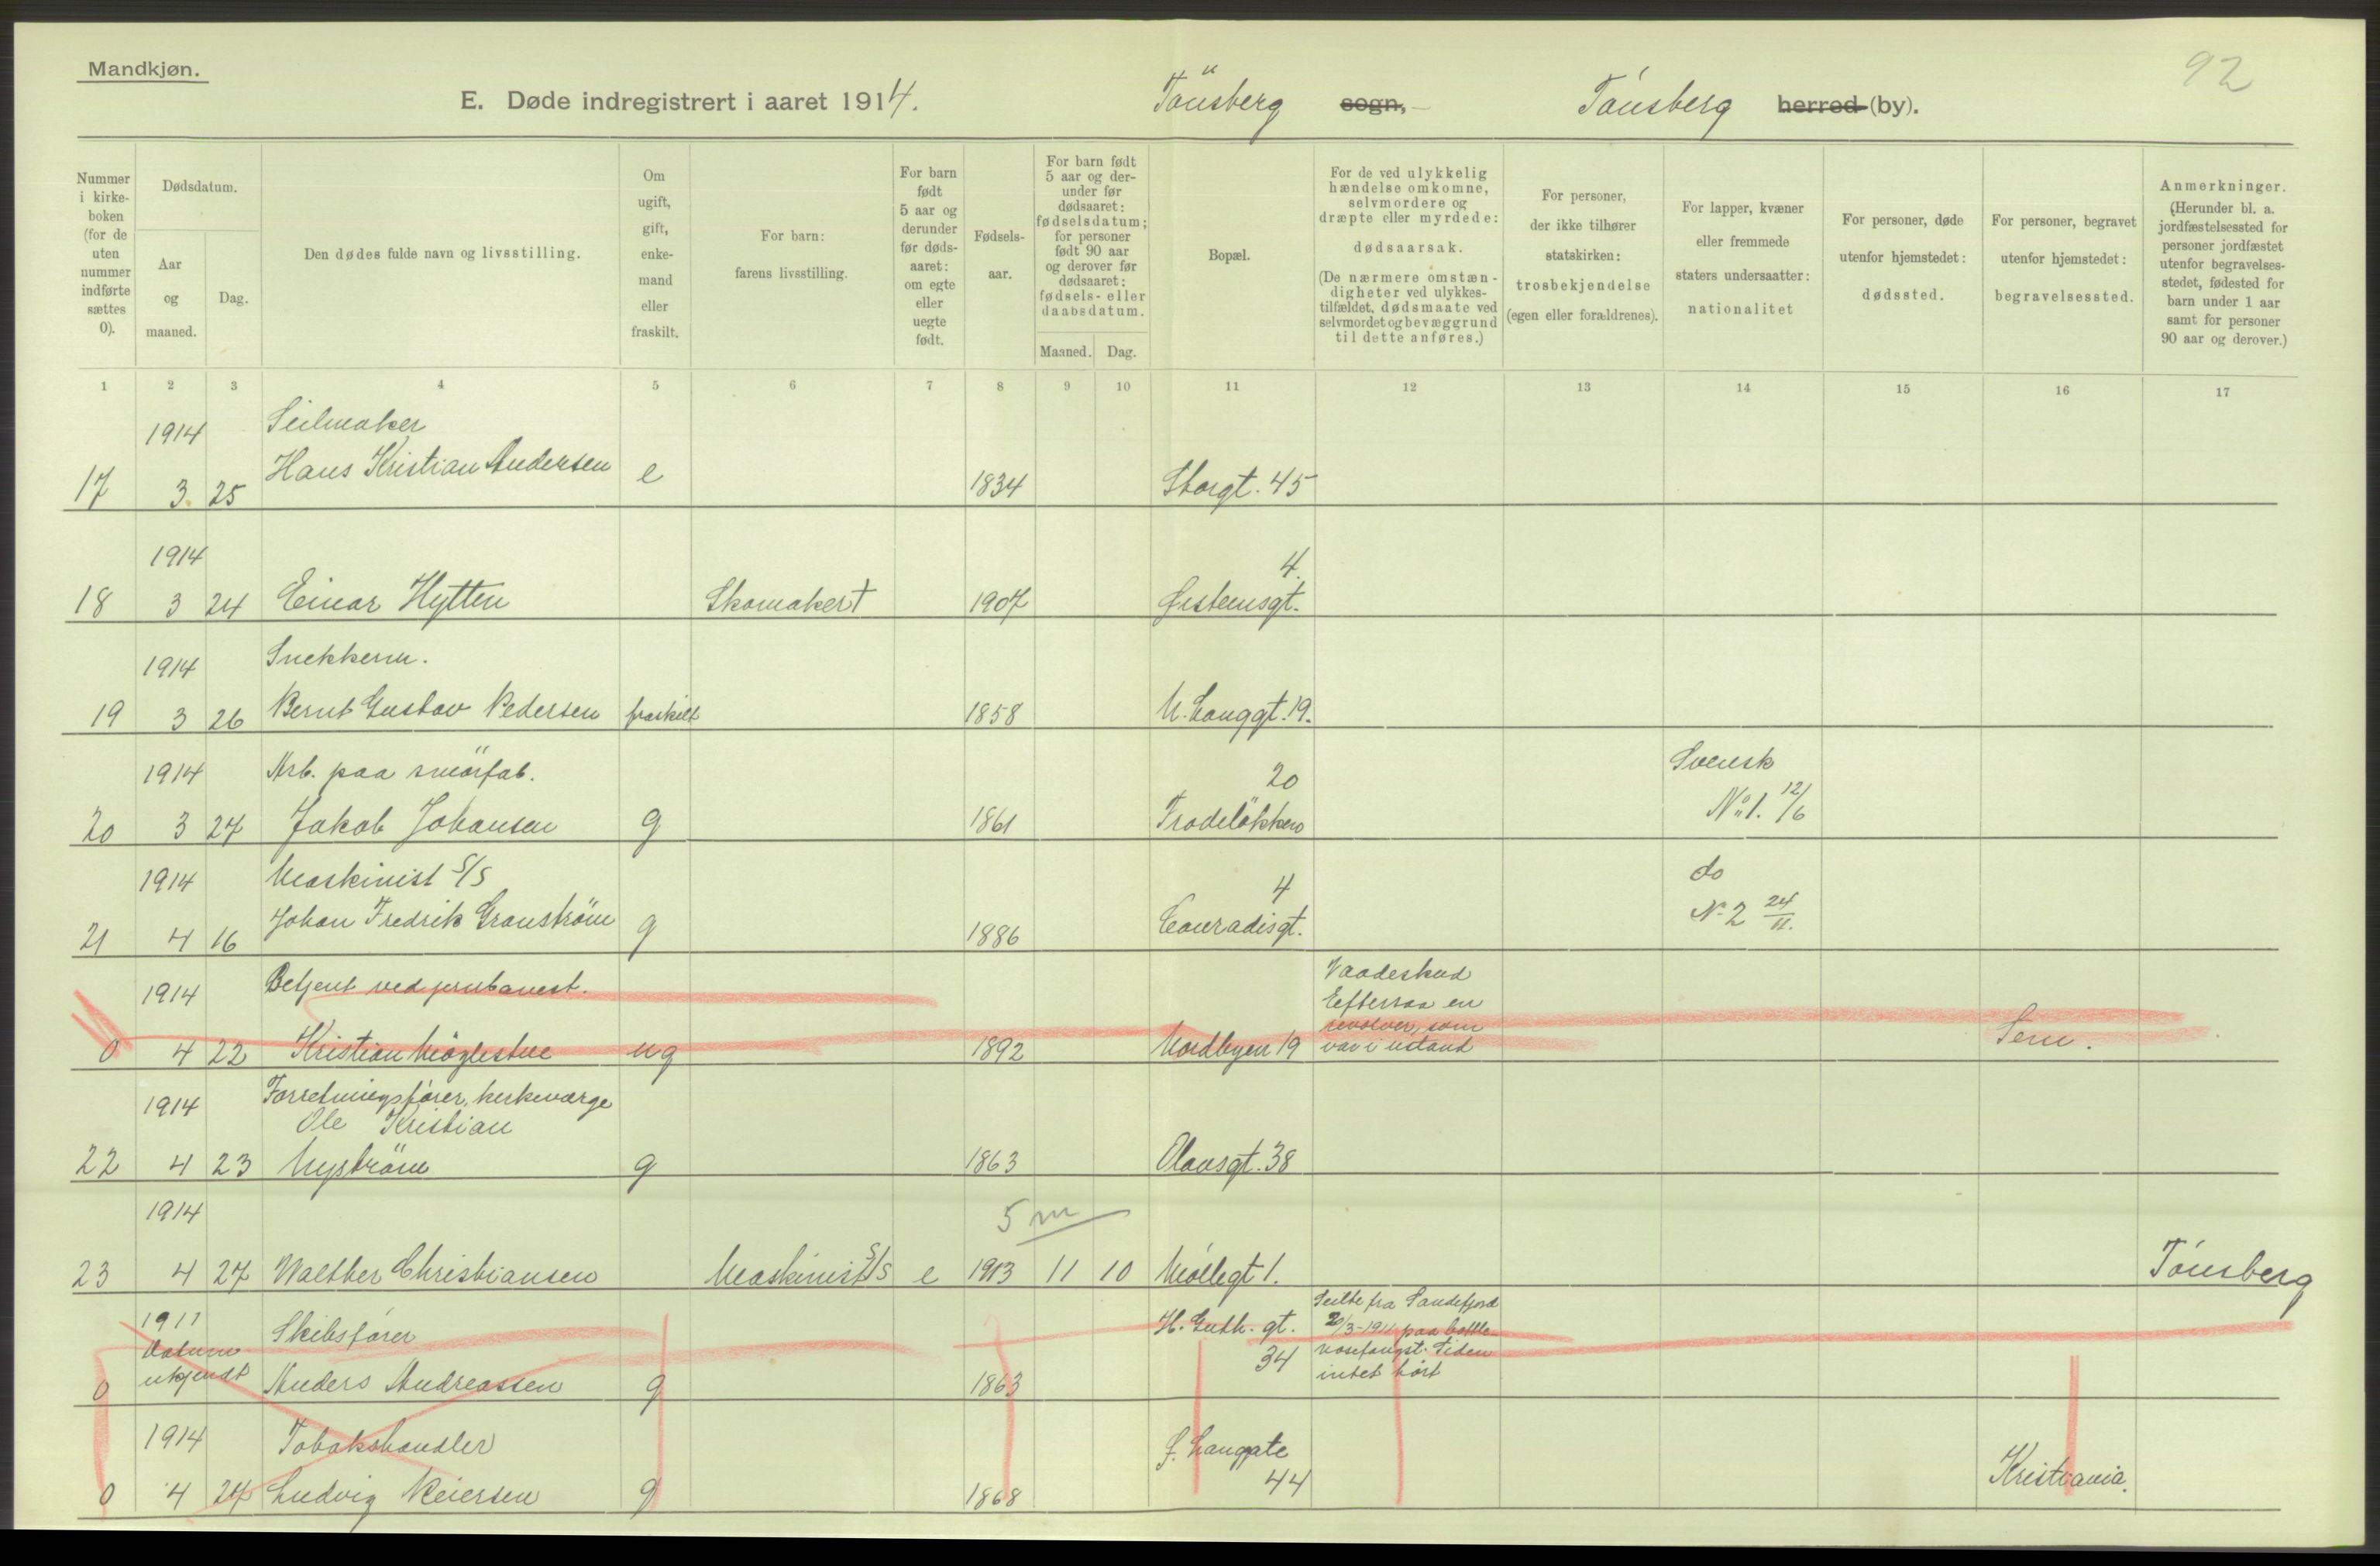 Mandkjøn.
92
E. Døde indregistrert i aaret 1914. Tönsberg sogn, Tónsberg herred (by).
Nummer i kirkeboken (for de uten nummer indførte sættes 0).
Dødsdatum.
Aar og maaned.
Dag.
Den dødes fulde navn og livsstilling.
Om ugift, gift, enkemand eller fraskilt.
For barn: farens livsstilling.
For barn født 5 aar og derunder før dødsaaret: om egte eller uegte født.
Fødselsaar.
For barn født 5 aar og derunder før dødsaaret: fødselsdatum; for personer født 90 aar og derover før dødsaaret: fødsels- eller daabsdatum.
Maaned.
Dag.
Bopæl.
For de ved ulykkelig hændelse omkomne, selvmordere og dræpte eller myrdede: dødsaarsak. (De nærmere omstændigheter ved ulykkestilfældet, dødsmaate ved selvmordet og bevæggrund til dette anføres.)
For personer, der ikke tilhører statskirken: trosbekjendelse (egen eller forældrenes).
For lapper, kvæner eller fremmede staters undersaatter: nationalitet
For personer, døde utenfor hjemstedet: dødssted.
For personer, begravet utenfor hjemstedet: begravelsessted.
Anmerkninger. (Herunder bl. a. jordfæstelsessted for personer jordfæstet utenfor begravelsesstedet, fødested for barn under 1 aar samt for personer 90 aar og derover.)
1 2 3 4 5 6 7 8 9 10 11 12 13 14 15 16 17
1914 Seilmaker
17 3. 25 Hans Kristian Andersen e 1834 Storgt. 45
1914 4.
18 3 24 Einar Hytten Skomaker † 1907 Østensgt.
1914 Snekkerm.
19 3 26 Bernt Gustav Pedersen fraskilt 1858 N. Langgt. 19.
1914 Arb. paa smörfab. 20 Svensk
20 3 27 Jakob Johansen g 1861 Trodelökken No 1. 12/6
1914 Maskinist S/S 4 do
21 4 16 Johan Fredrik Granström g 1886 Conradisgt. No 2 24/11.
1914 Betjent ved jernbanest. Vaadeskud
Eftersaa en
revolver, som
0 4 22 Kristian Móglestue ug 1892 Nordbyen 19 var i ustand Sem.
1914 Forretningsfører, kirkeværge
Ole Kristian
22 4 23 Nyström g 1863 Olavsgt. 38
1914 5 m
23 4 27 Walther Christiansen Maskinist S/S e 1913 11 10 Móllegt 1. Tónsberg
1911 Skibsfører H. Guth. gt. Seilte fra Sandefjord
Datum 20/3-1911 paa bottle-
ukjendt 34 nosefangst. Siden
0 Anders Andreassen g 1863 intet hört
1914 Tobakshandler f. Langgate
0 4 24 Ludvig Reiersen g 1868 44 Kristiania.